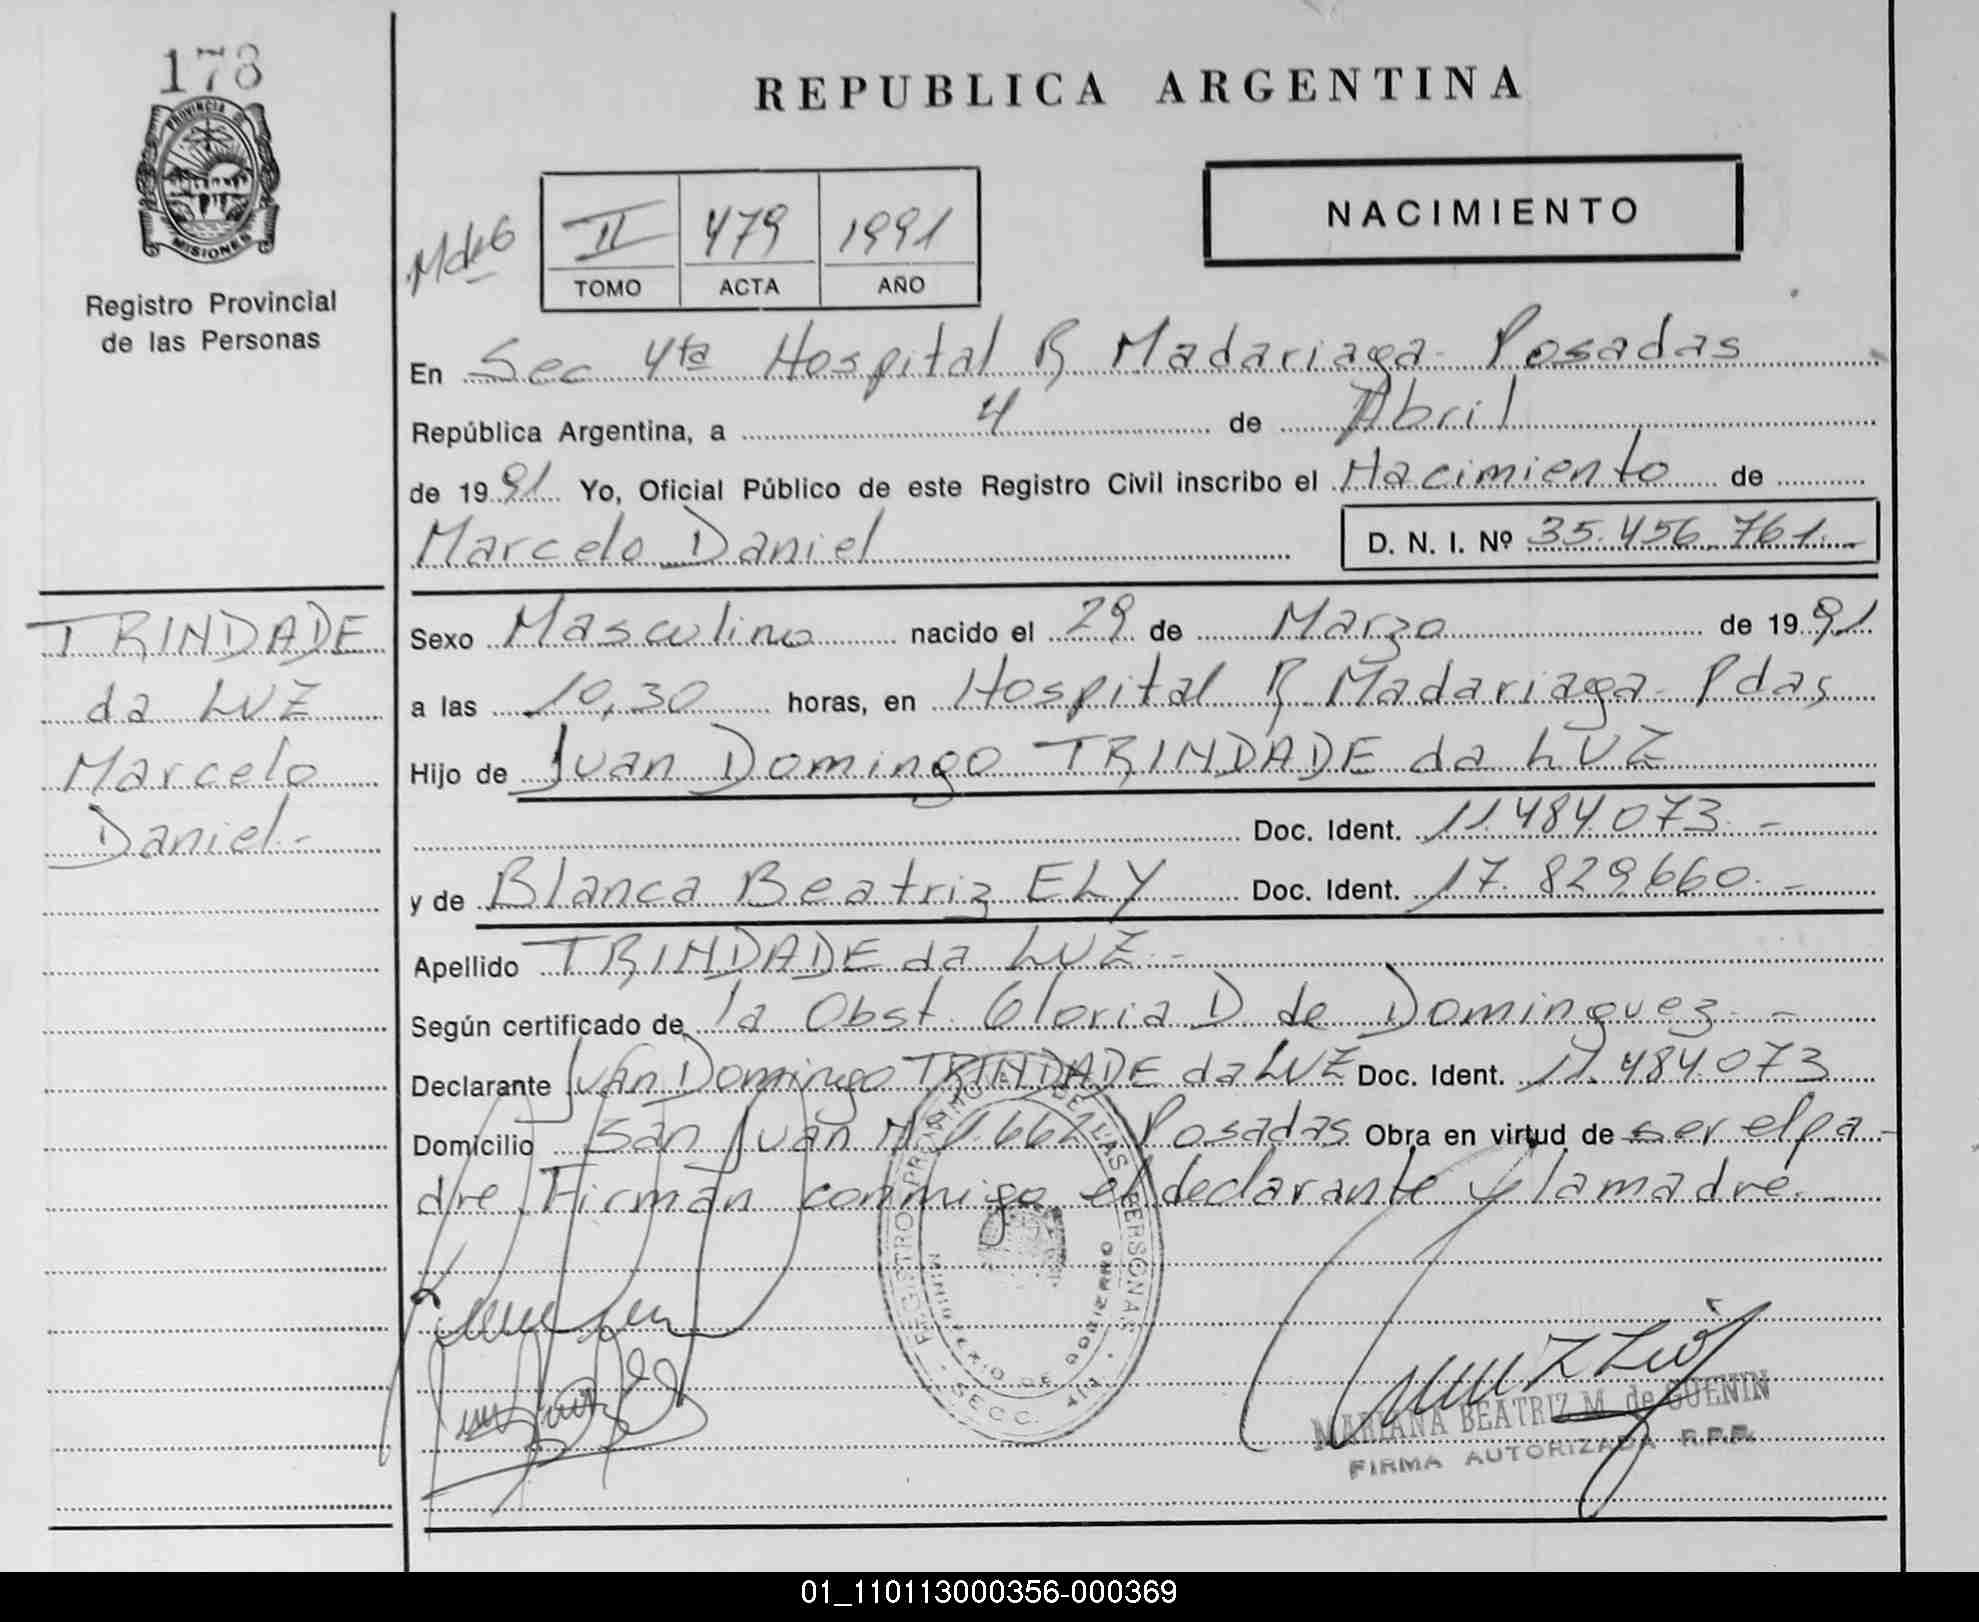 178
PROVINCIA DE
MISIONES
Registro Provincial
de las Personas
REPUBLICA ARGENTINA
NACIMIENTO
II 479 1991
TOMO ACTA AÑO
En Sec 4ta Hospital R Madariaga - Posadas
República Argentina, a 4 de Abril
de 1991 Yo, Oficial Público de este Registro Civil inscribo el Nacimiento de
Marcelo Daniel D. N. I. Nº 35.456.761.-
TRINDADE
da LUZ
Marcelo
Daniel.-
Sexo Masculino nacido el 29 de Marzo de 1991
a las 10,30 horas, en Hospital R Madariaga - Pdas
Hijo de Juan Domingo TRINDADE da LUZ
Doc. Ident. 11.484.073.-
y de Blanca Beatriz ELY Doc. Ident. 17.829.660.-
Apellido TRINDADE da LUZ.-
Según certificado de la Obst. Gloria D de Dominguez.-
Declarante Juan Domingo TRINDADE da LUZ Doc. Ident. 11.484.073
Domicilio San Juan Nº 1662 Posadas Obra en virtud de ser el pa-
dre. Firman conmigo el declarante y la madre.
REGISTRO PROVINCIAL DE LAS PERSONAS
MINISTERIO DE GOBIERNO
SECC. 4ta
MARIANA BEATRIZ M. de GUENIN
FIRMA AUTORIZADA R.P.P.
01_110113000356-000369